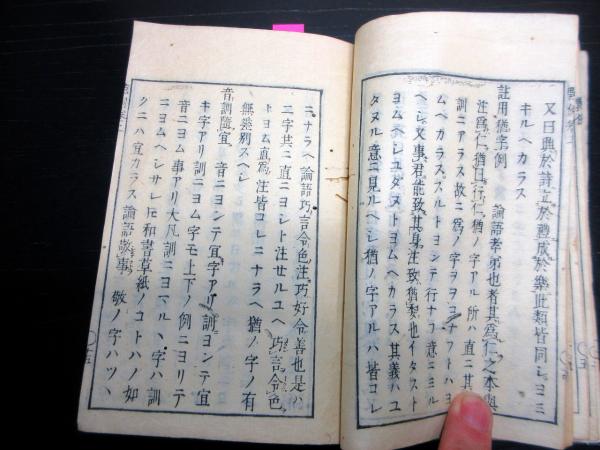 又曰興於詩立於禮成於樂此類皆同シヨミ
キルヘカラス
註用猶字例 論語孝弟也者其爲仁之本與
注爲仁猶曰行仁猶ノ字アル所ハ直ニ其
訓ニアラス故ニ爲ノ字ヲヲコナフトハヨ
ムヘカラススルトヨンテ行ナフ意ニヨル
ヘシ又事君能致其身注致猶委也イタスト
ヨムヘシユダヌトヨムヘカラス其義ハユ
タヌル意ニ見ルヘシ猶ノ字アルハ皆コレ
ニナラヘ論語巧言令色注巧好令善也是ハ
二字共ニ直ニヨシト注セルユヘ巧言令色
トヨム直爲注皆コレニナラヘ猶ノ字ノ有
無差別スヘシ
音訓隨宜 音ニヨンテ宜字アリ訓ヨンテ宜
キ字アリ訓ニヨム字モ上下ノ例ニヨリテ
音ニヨム事アリ大凡訓ニヨマルヽ字ハ訓
ニヨムヘシサレ𪜈和書草紙ノコトハノ如
クニハ宜カラス論語敬事 敬ノ字ハツヽ